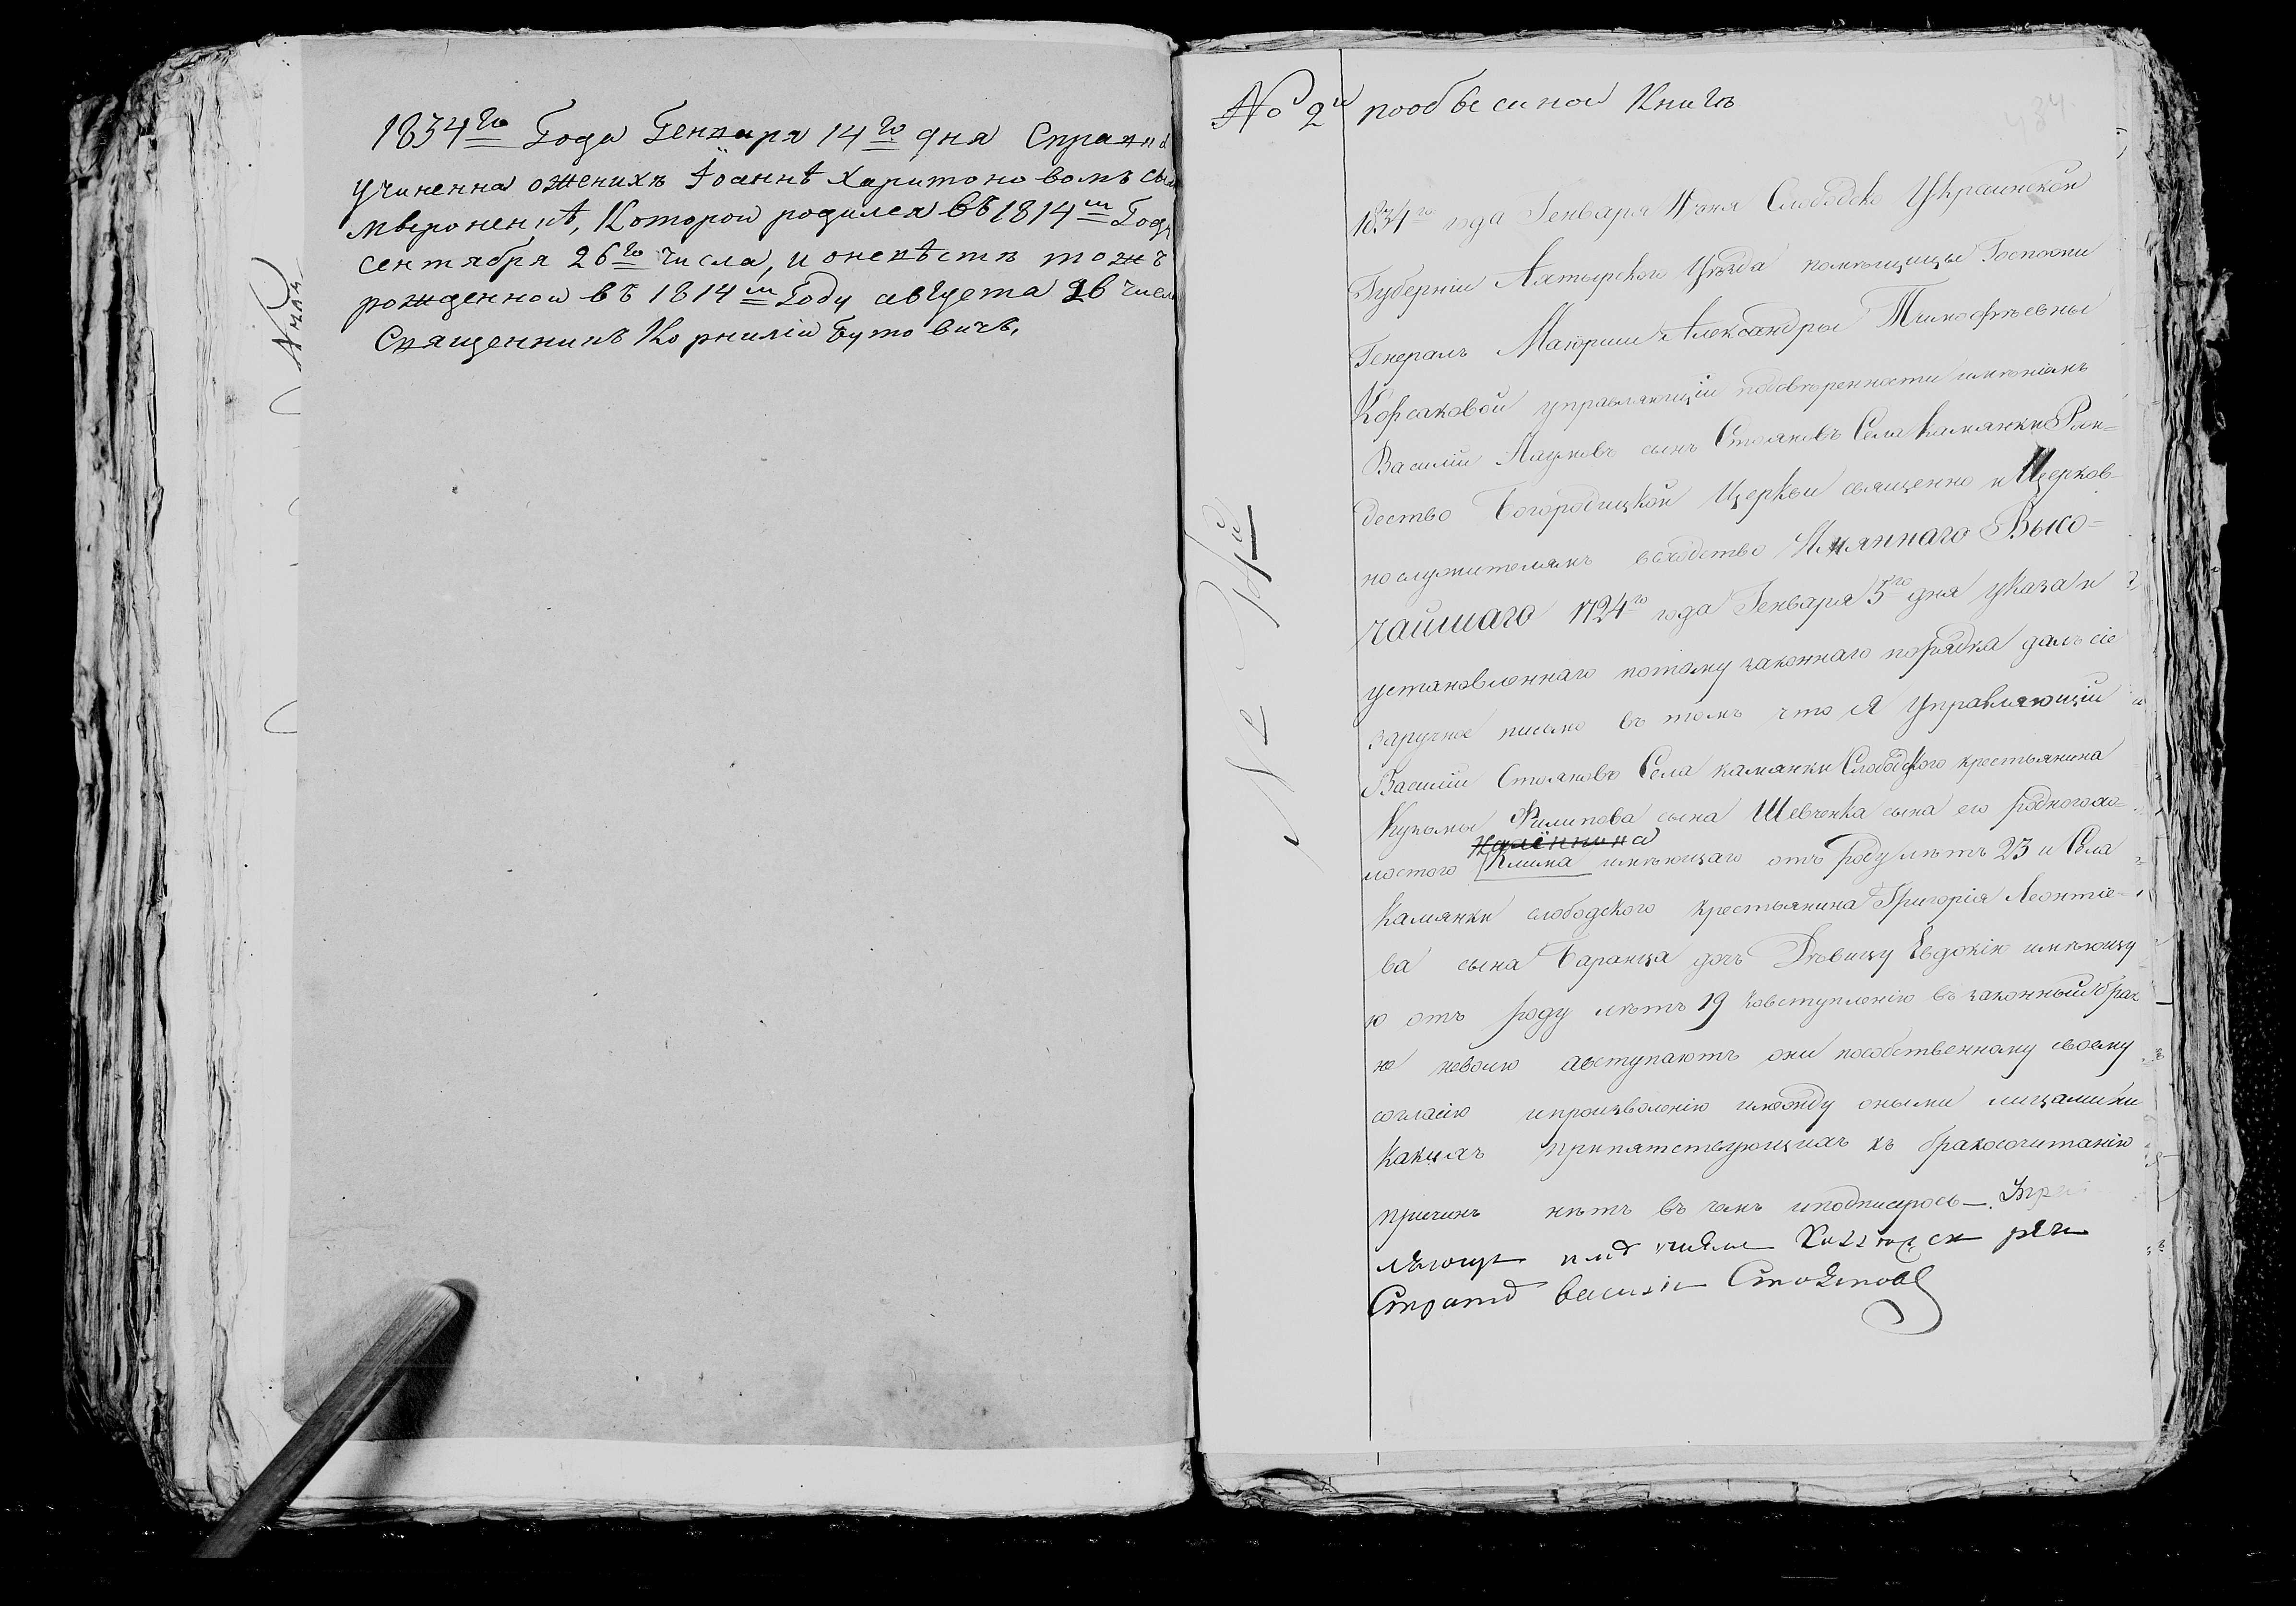 1834го Года Генваря 14го дня Справка
учиненна оженихъ Іоаннѣ Харитоновомъ сынѣ
Мвроненкѣ, Которой родился въ 1814м Году
сентября 26го числа, и оневѣстѣ тожъ
рожденной въ 1814м Году августа 26 числа
Священникъ Корнилій Бутовичъ.
№ 2й пообыскной Книгѣ
434
1834го года Генваря дня Слободско Украинской
Губерніи Ахтырского Уѣзда помѣщицы Госпожи
Генералъ Маіорши Александры Тимофѣевны
Корсаковой управляющій подовѣренности имѣніемъ
Василій Наумовъ сынъ Стояновъ Села Камянки Рож=
дество Богородицкой Церкви священно и Церков-
нослужителямъ всходство Имяннаго Высо=
чайшаго 1724го года Генваря 5го дня указа и
установленнаго потому законнаго порядка далъ сіе
заручное письмо въ томъ что я Управляющій
Василій Стояновъ Села камянки Слободского крестьянина
Кузьмы Филипова сына Шевченка сына его родного хо-
лостого Клима имѣющаго отъ роду лѣтъ 23 и Села
Камянки слободского крестьянина Григорія Леонтіе-
ва сына Баранца дочь Дѣвицу Евдокію имѣющу
ю отъ роду лѣтъ 19 ковступленію въ законный брак
не неволю авступаютъ они пособственному своему
согласію ипроизволенію имежду оными лицами ни
Какихъ припятствующихъ къ бракосочитанію
причинъ нѣтъ въ чемъ иподписуюсь —. Упра
вляющи
Василій Стояновъ